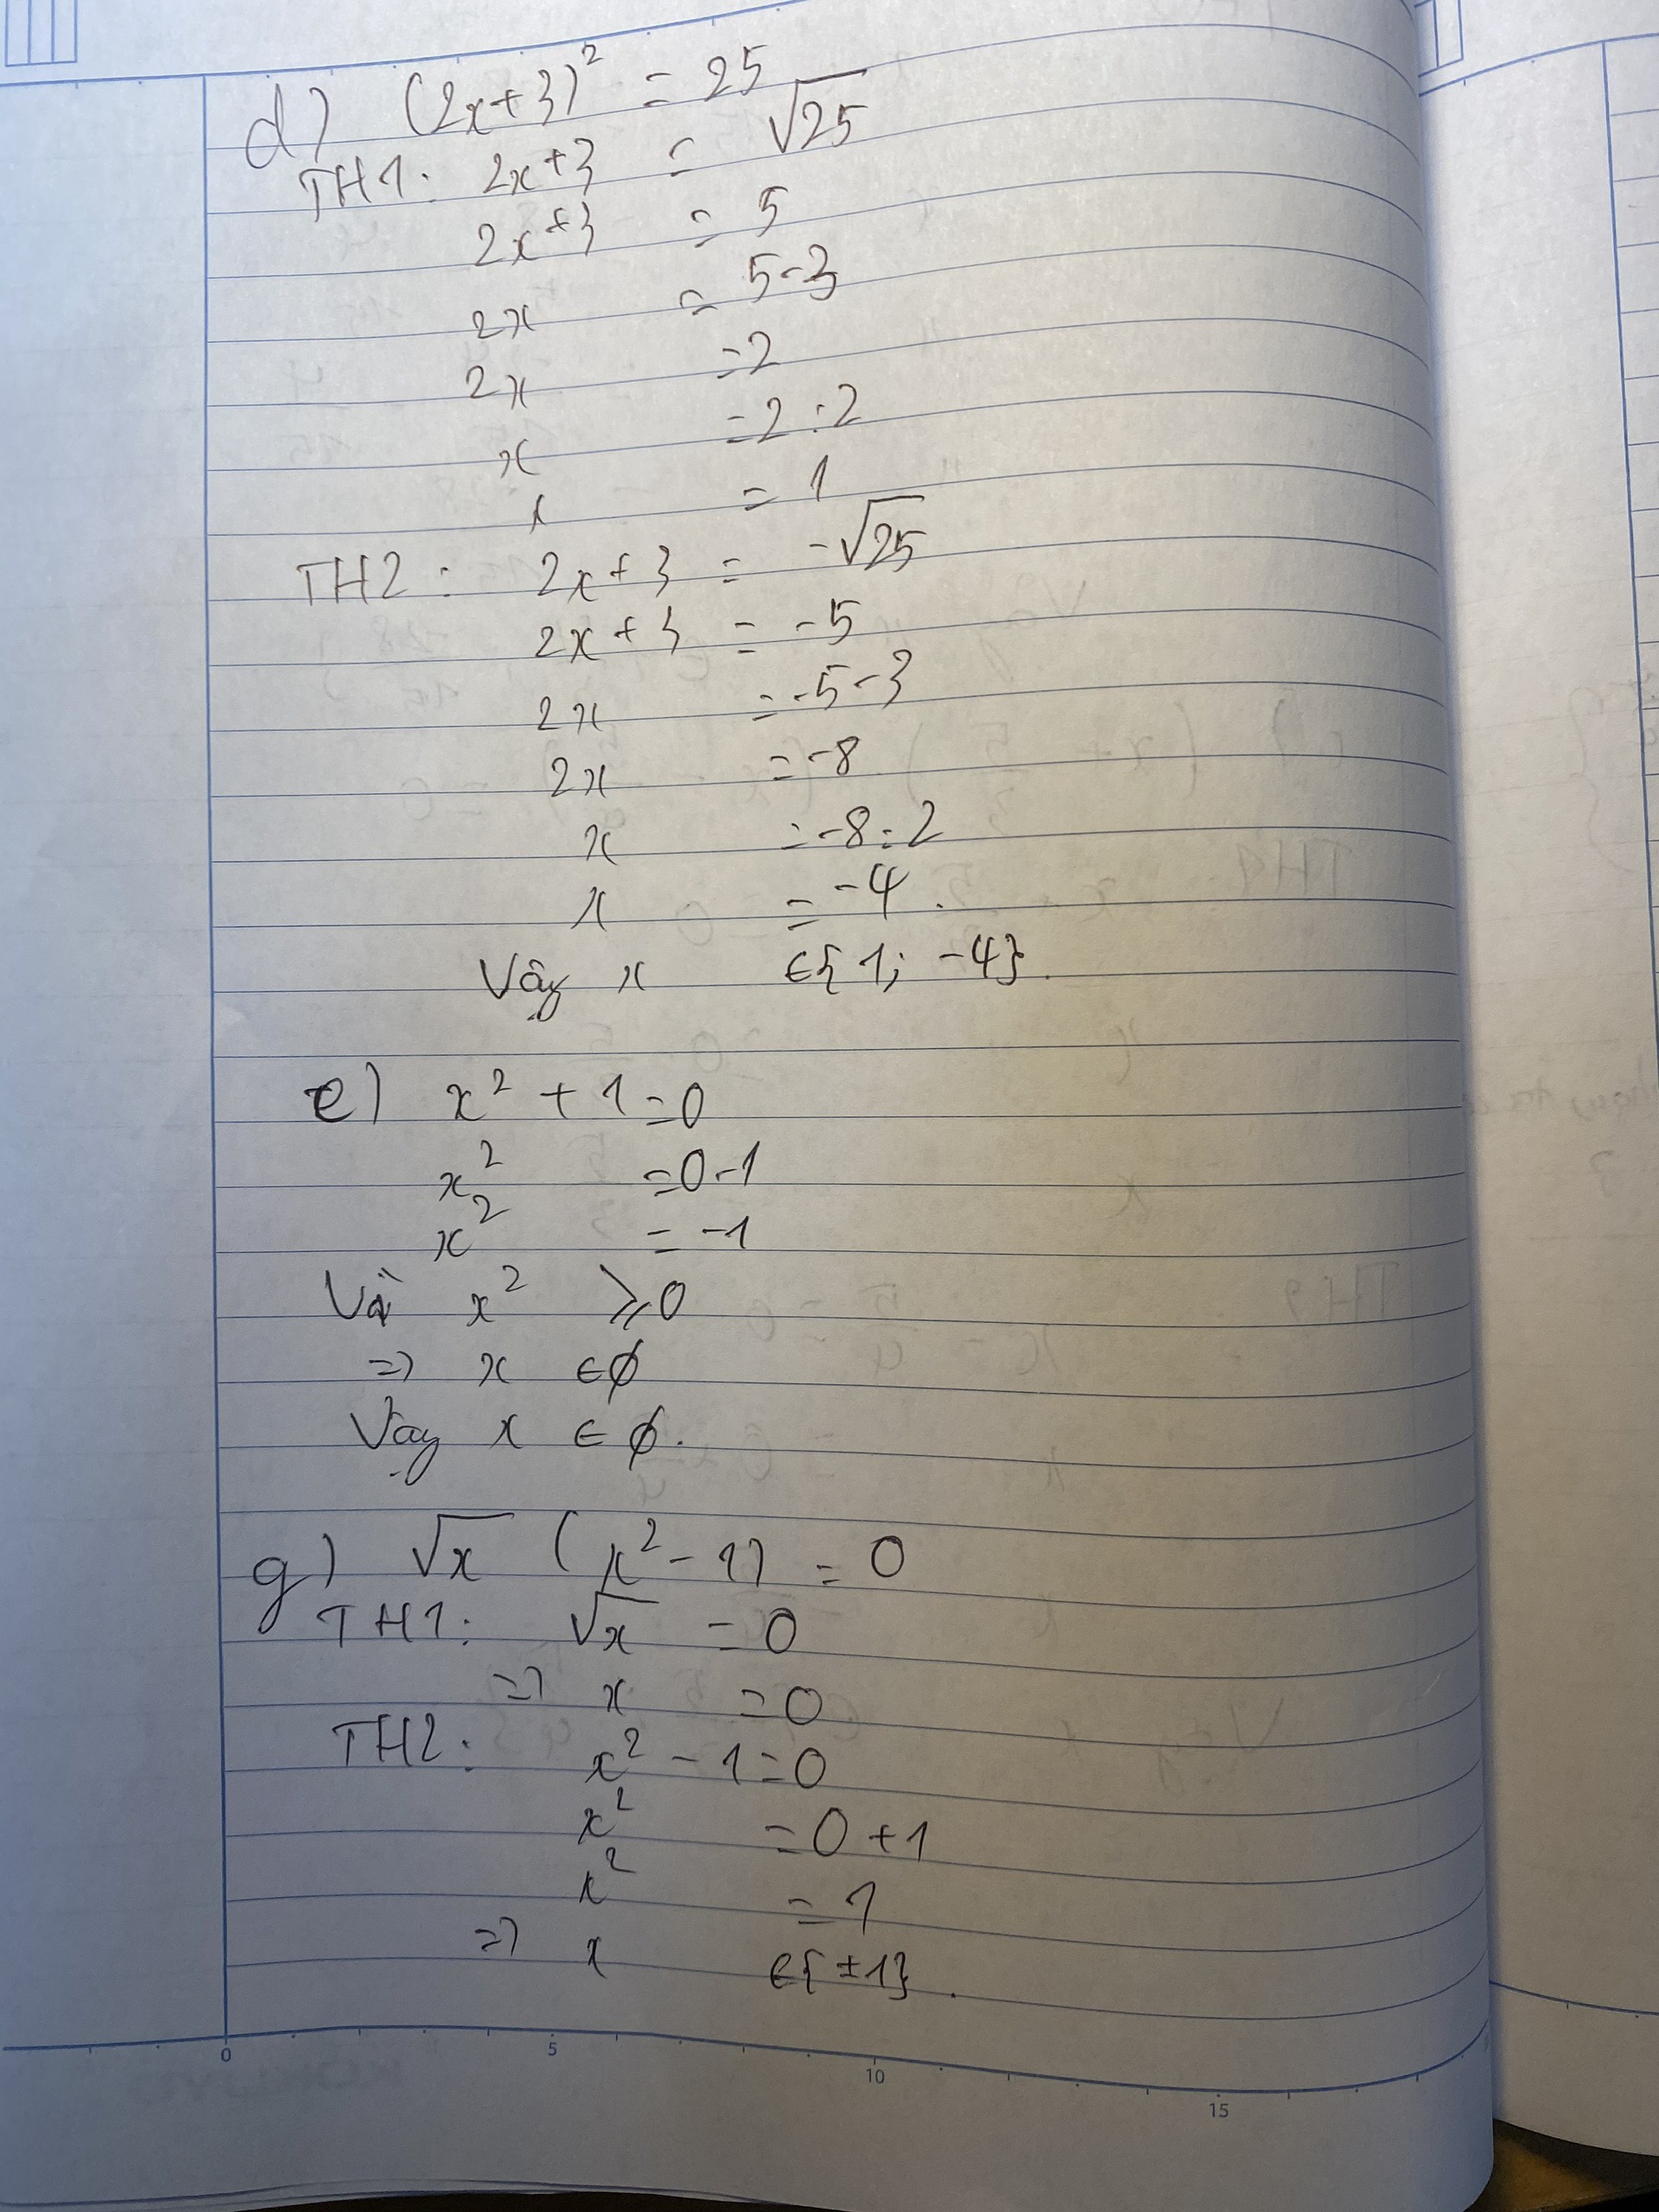 d) (2x+3)² = 25
TH1: 2x+3 = √25
2x+3 = 5
2x = 5-3
2x = 2
x = 2:2
x = 1
TH2: 2x+3 = -√25
2x+3 = -5
2x = -5-3
2x = -8
x = -8:2
x = -4.
Vậy x ∈{1; -4}.
e) x² + 1 = 0
x² = 0-1
x² = -1
Vì x² ⩾ 0
=> x ∈ ∅
Vậy x ∈ ∅.
g) √x (x² - 1) = 0
TH1: √x = 0
=> x = 0
TH2: x² - 1 = 0
x² = 0+1
x² = 1
=> x ∈{±1}.
0 5 10 15